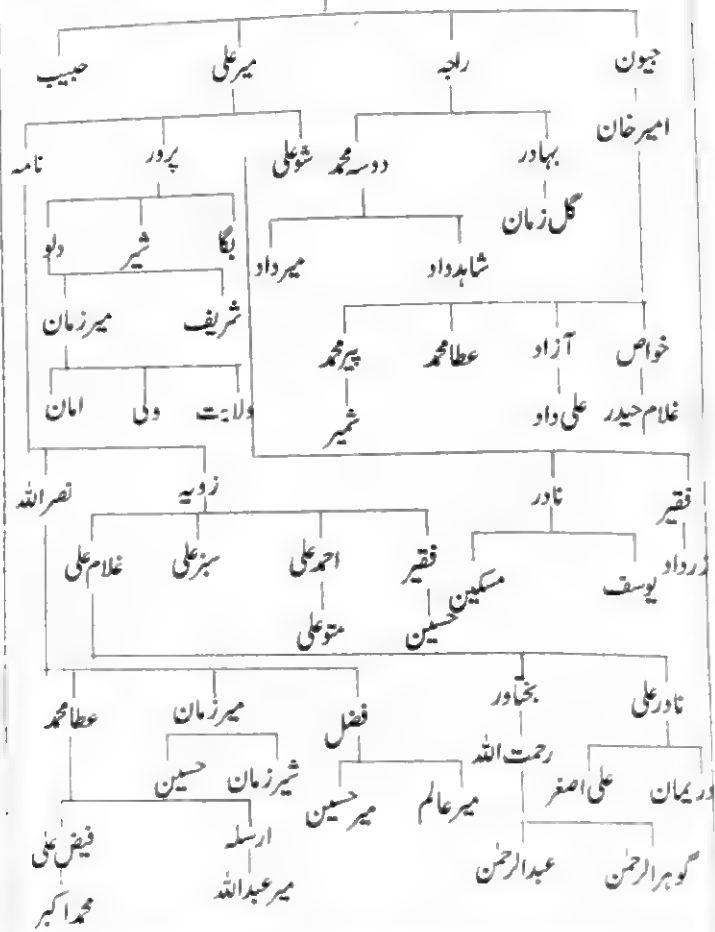 جیون راجہ میرعلی حبیب
امیرخان
بہادر دوسہ محمد شوعلی پرور نامہ
گل زمان
بگا شیر دلو
شاہدداد میرداد
شریف میرزمان
خواص آزاد عطامحمد پیرمحمد
ولایت ولی امان
غلام حیدر علی داد شمیر
فقیر نادر زوبیہ نصراللہ
زرداد
یوسف مسکین فقیر احمدعلی سبزعلی غلام علی
حسین متوعلی
نادرعلی بختاور فضل میرزمان عطامحمد
رحمت اللہ
نریمان علی اصغر میرعالم میرحسین شیرزمان حسین
ارسلہ فیض علی
گوہرالرحمٰن عبدالرحمٰن میرعبداللہ محمداکبر